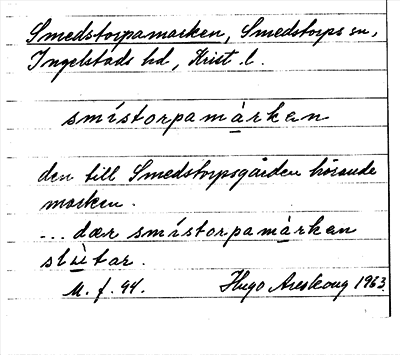 Smedstorpamarken, Smedstorps sn,
Ingelstads hd, Krist. l.
smístorpamàrken
den till Smedstorpsgården hörande
marken.
... dær smístorpamàrken
slùtar.
M. f. 94. Hugo Areskoug 1963.